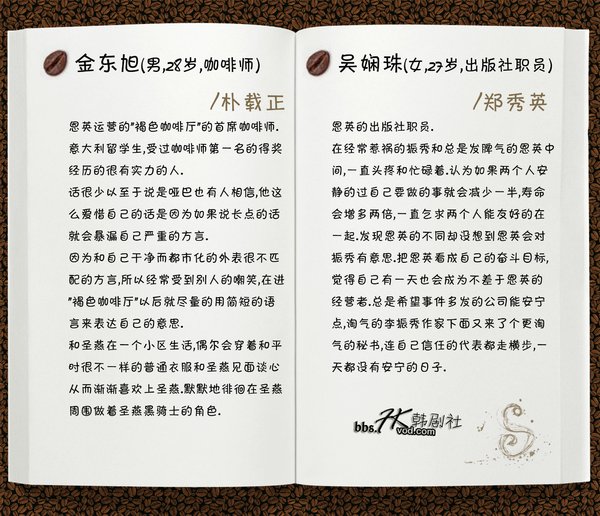 金东旭(男,28岁,咖啡师)
/朴载正
恩英运营的"褐色咖啡厅"的首席咖啡师.
意大利留学生,受过咖啡师第一名的得奖
经历的很有实力的人.
话很少以至于说是哑巴也有人相信,他这
么爱惜自己的话是因为如果说长点的话
就会暴漏自己严重的方言.
因为和自己干净而都市化的外表很不匹
配的方言,所以经常受到别人的嘲笑,在进
"褐色咖啡厅"以后就尽量的用简短的语
言来表达自己的意思.
和圣燕在一个小区生活,偶尔会穿着和平
时很不一样的普通衣服和圣燕见面谈心
从而渐渐喜欢上圣燕.默默地徘徊在圣燕
周围做着圣燕黑骑士的角色.
吴娴珠(女,27岁,出版社职员)
/郑秀英
恩英的出版社职员.
在经常惹祸的振秀和总是发脾气的恩英中
间,一直头疼和忙碌着.认为如果两个人安
静的过自己要做的事就会减少一半,寿命
会增多两倍,一直乞求两个人能友好的在
一起.发现恩英的不同却没想到恩英会对
振秀有意思.把恩英看成自己的奋斗目标,
觉得自己有一天也会成为不差于恩英的
经营老.总是希望事件多发的公司能安宁
点,淘气的李振秀作家下面又来了个更淘
气的秘书,连自己信任的代表都走横步,一
天都没有安宁的日子.
bbs.HK韩剧社
vod.com
S